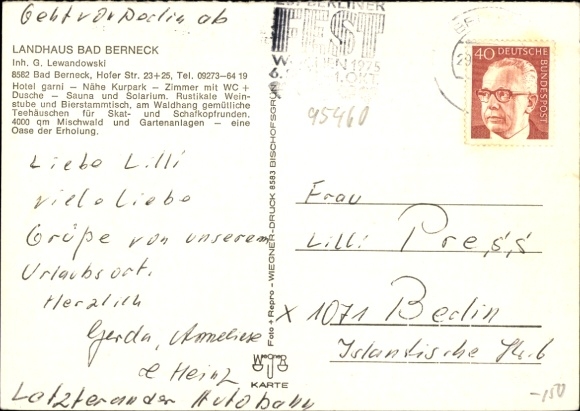 Geht von Berlin ab
LANDHAUS BAD BERNECK
Inh. G. Lewandowski
8582 Bad Berneck, Hofer Str. 23+25, Tel. 09273–64 19
Hotel garni – Nähe Kurpark – Zimmer mit WC +
Dusche – Sauna und Solarium. Rustikale Wein-
stube und Bierstammtisch, am Waldhang gemütliche
Teehäuschen für Skat- und Schafkopfrunden.
4000 qm Mischwald und Gartenanlagen – eine
Oase der Erholung.
Liebe Lilli
viele liebe
Grüße von unserem
Urlaubsort.
Herzlich
Gerda, Anneliese
& Heinz
Latzter an der Autobahn
BERLINER
FEST
WOCHEN 1975
40 DEUTSCHE
BUNDESPOST
95460
Foto + Repro – WIEGNER-DRUCK 8583 BISCHOFSGRÜN
WIEGNER
KARTE
Frau
Lilli Press
X 1071 Berlin
Isländische Str. 6
-150